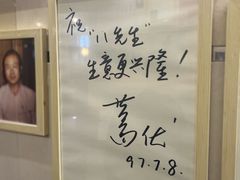 祝"八先生"
生意更兴隆！
葛优
97.7.8.